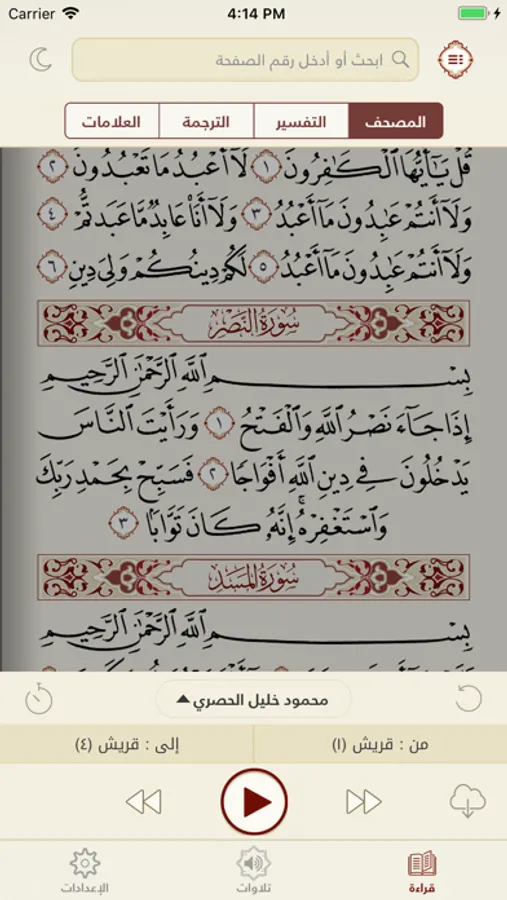 Carrier 4:14 PM
ابحث أو أدخل رقم الصفحة
المصحف التفسير الترجمة العلامات
قُلْ يَـٰٓأَيُّهَا ٱلْكَـٰفِرُونَ ١ لَآ أَعْبُدُ مَا تَعْبُدُونَ ٢
وَلَآ أَنتُمْ عَـٰبِدُونَ مَآ أَعْبُدُ ٣ وَلَآ أَنَا۠ عَابِدٌ مَّا عَبَدتُّمْ ٤
وَلَآ أَنتُمْ عَـٰبِدُونَ مَآ أَعْبُدُ ٥ لَكُمْ دِينُكُمْ وَلِىَ دِينِ ٦
سُورَةُ النَّصْرِ
بِسْمِ ٱللَّهِ ٱلرَّحْمَـٰنِ ٱلرَّحِيمِ
إِذَا جَآءَ نَصْرُ ٱللَّهِ وَٱلْفَتْحُ ١ وَرَأَيْتَ ٱلنَّاسَ
يَدْخُلُونَ فِى دِينِ ٱللَّهِ أَفْوَاجًا ٢ فَسَبِّحْ بِحَمْدِ رَبِّكَ
وَٱسْتَغْفِرْهُ ۚ إِنَّهُۥ كَانَ تَوَّابًۢا ٣
سُورَةُ المَسَدِ
بِسْمِ ٱللَّهِ ٱلرَّحْمَـٰنِ ٱلرَّحِيمِ
محمود خليل الحصري
من : قريش (١) إلى : قريش (٤)
قراءة تلاوات الإعدادات